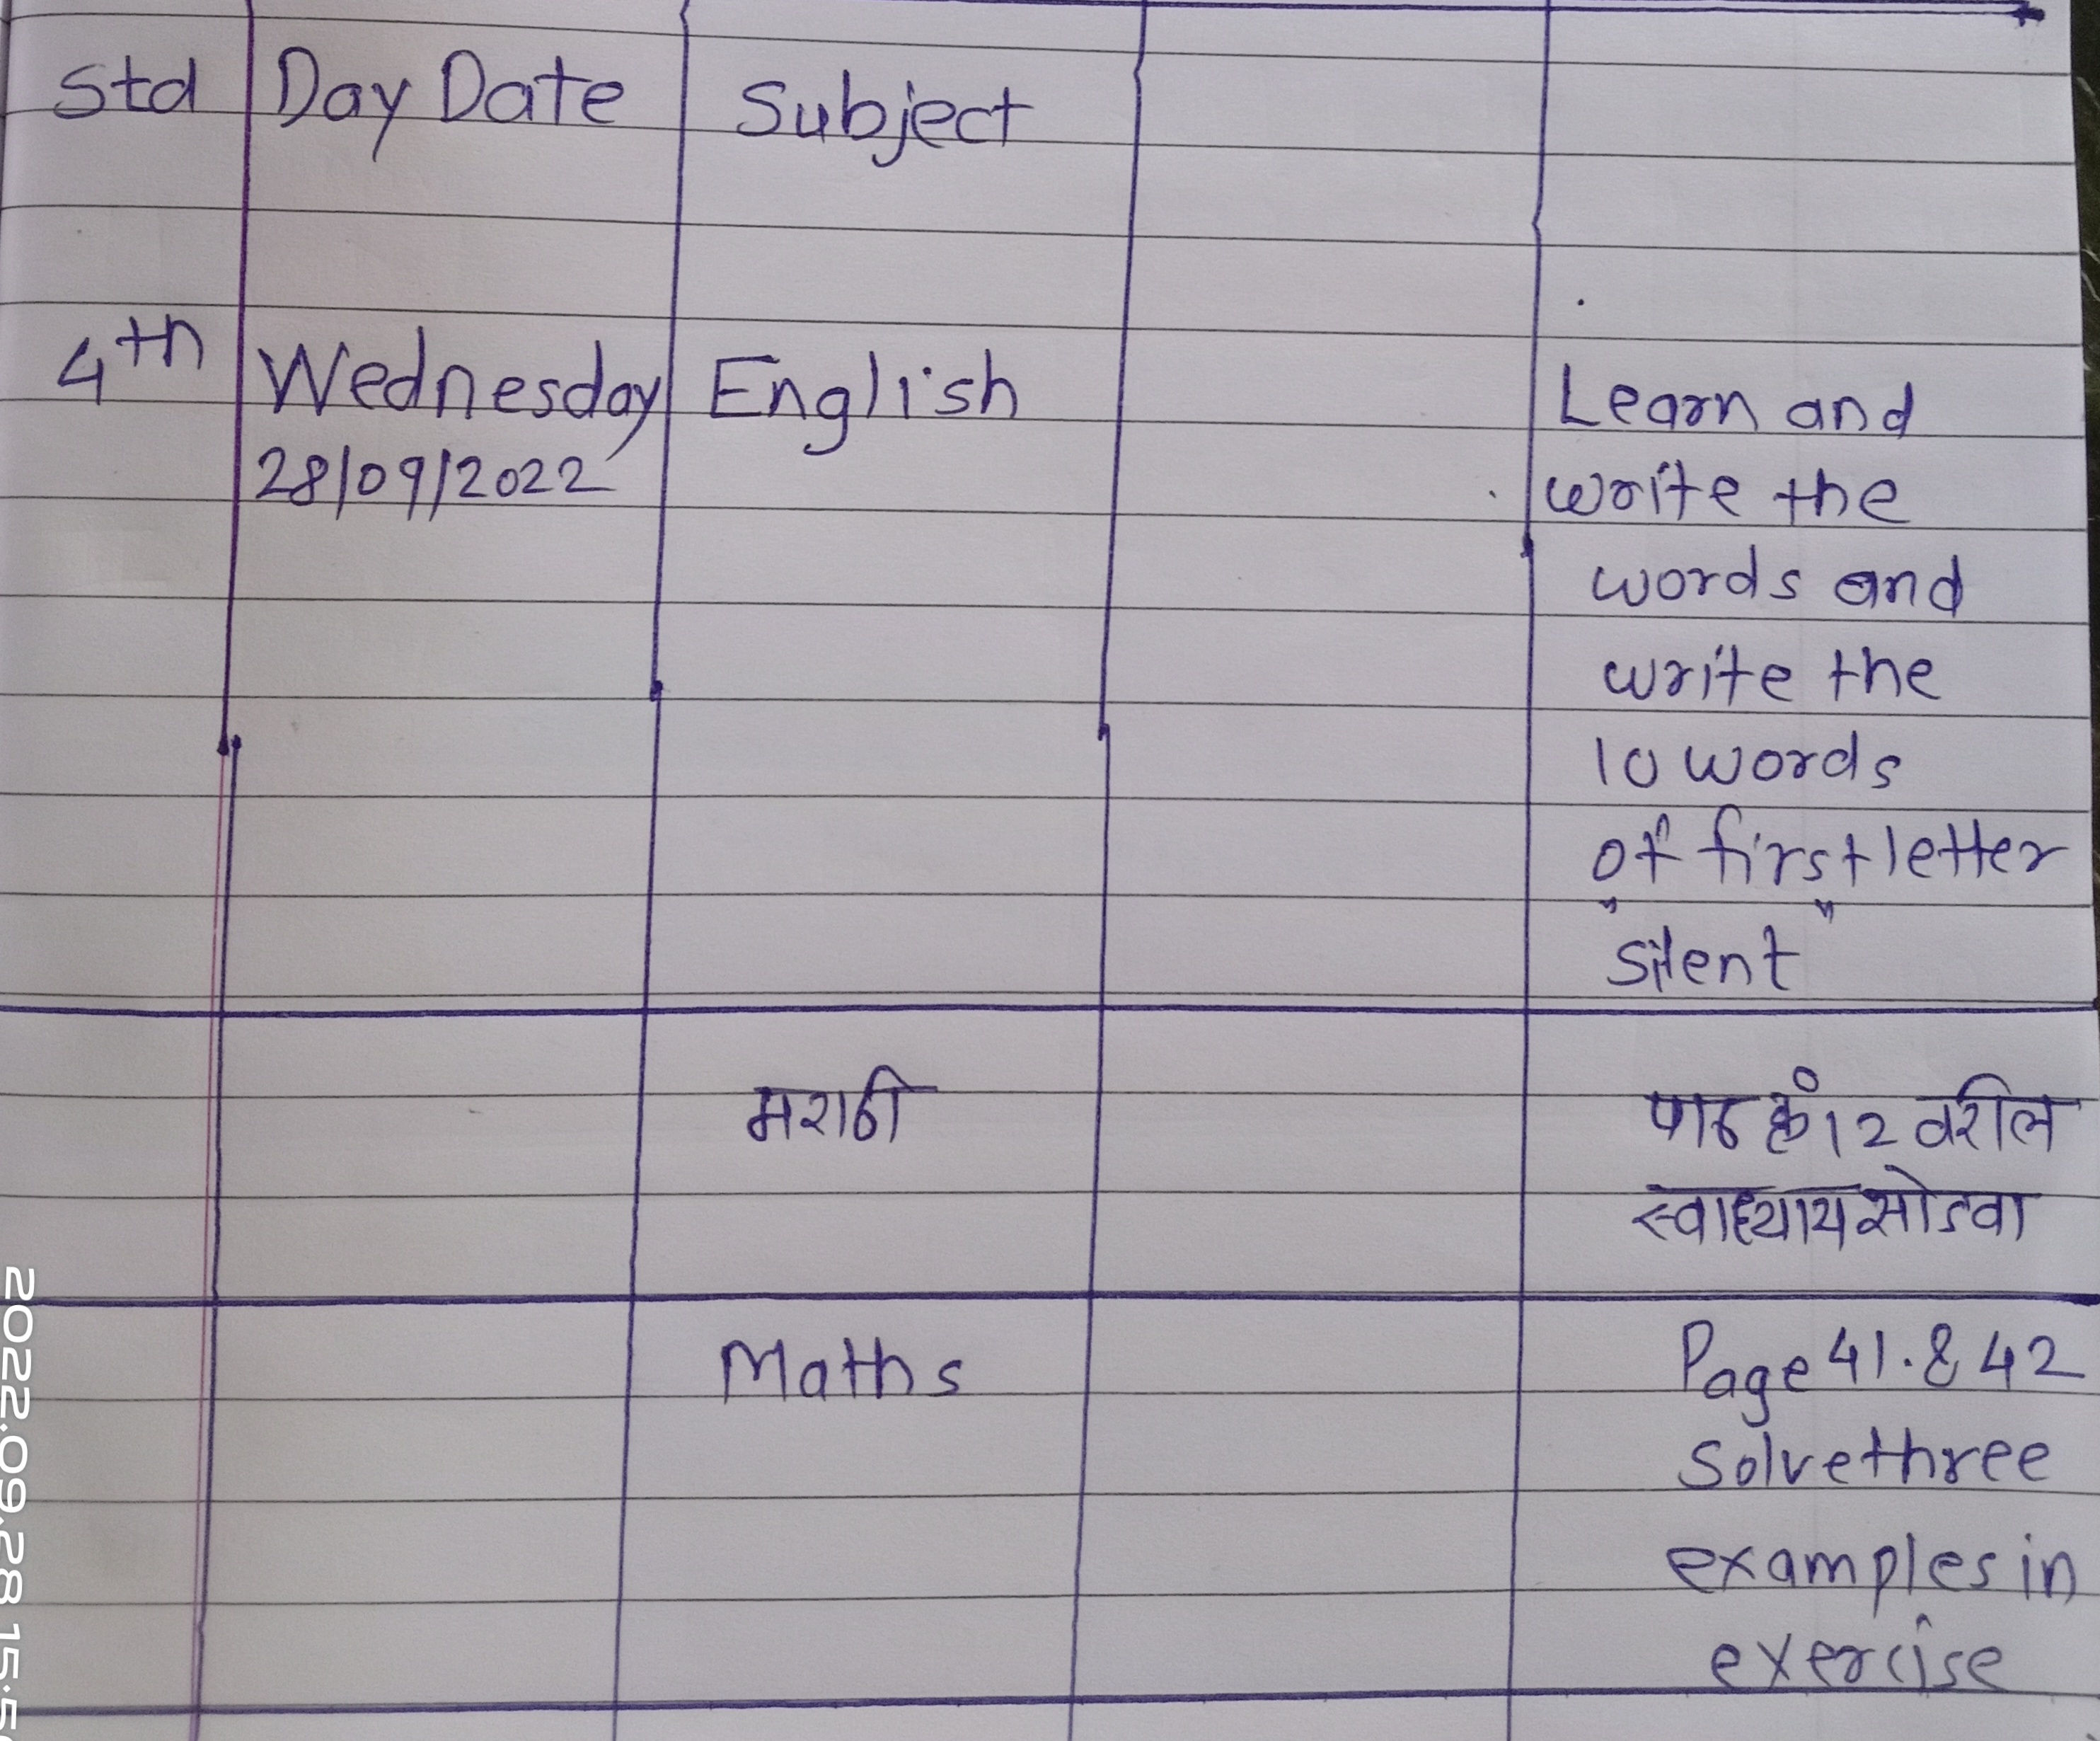 Std Day Date Subject
4th Wednesday English Learn and
28/09/2022 write the
words and
write the
10 words
of first letter
"silent"
मराठी पाठ क्रं 12 वरील
स्वाध्याय सोडवा
Maths Page 41. & 42
Solve three
examples in
exercise